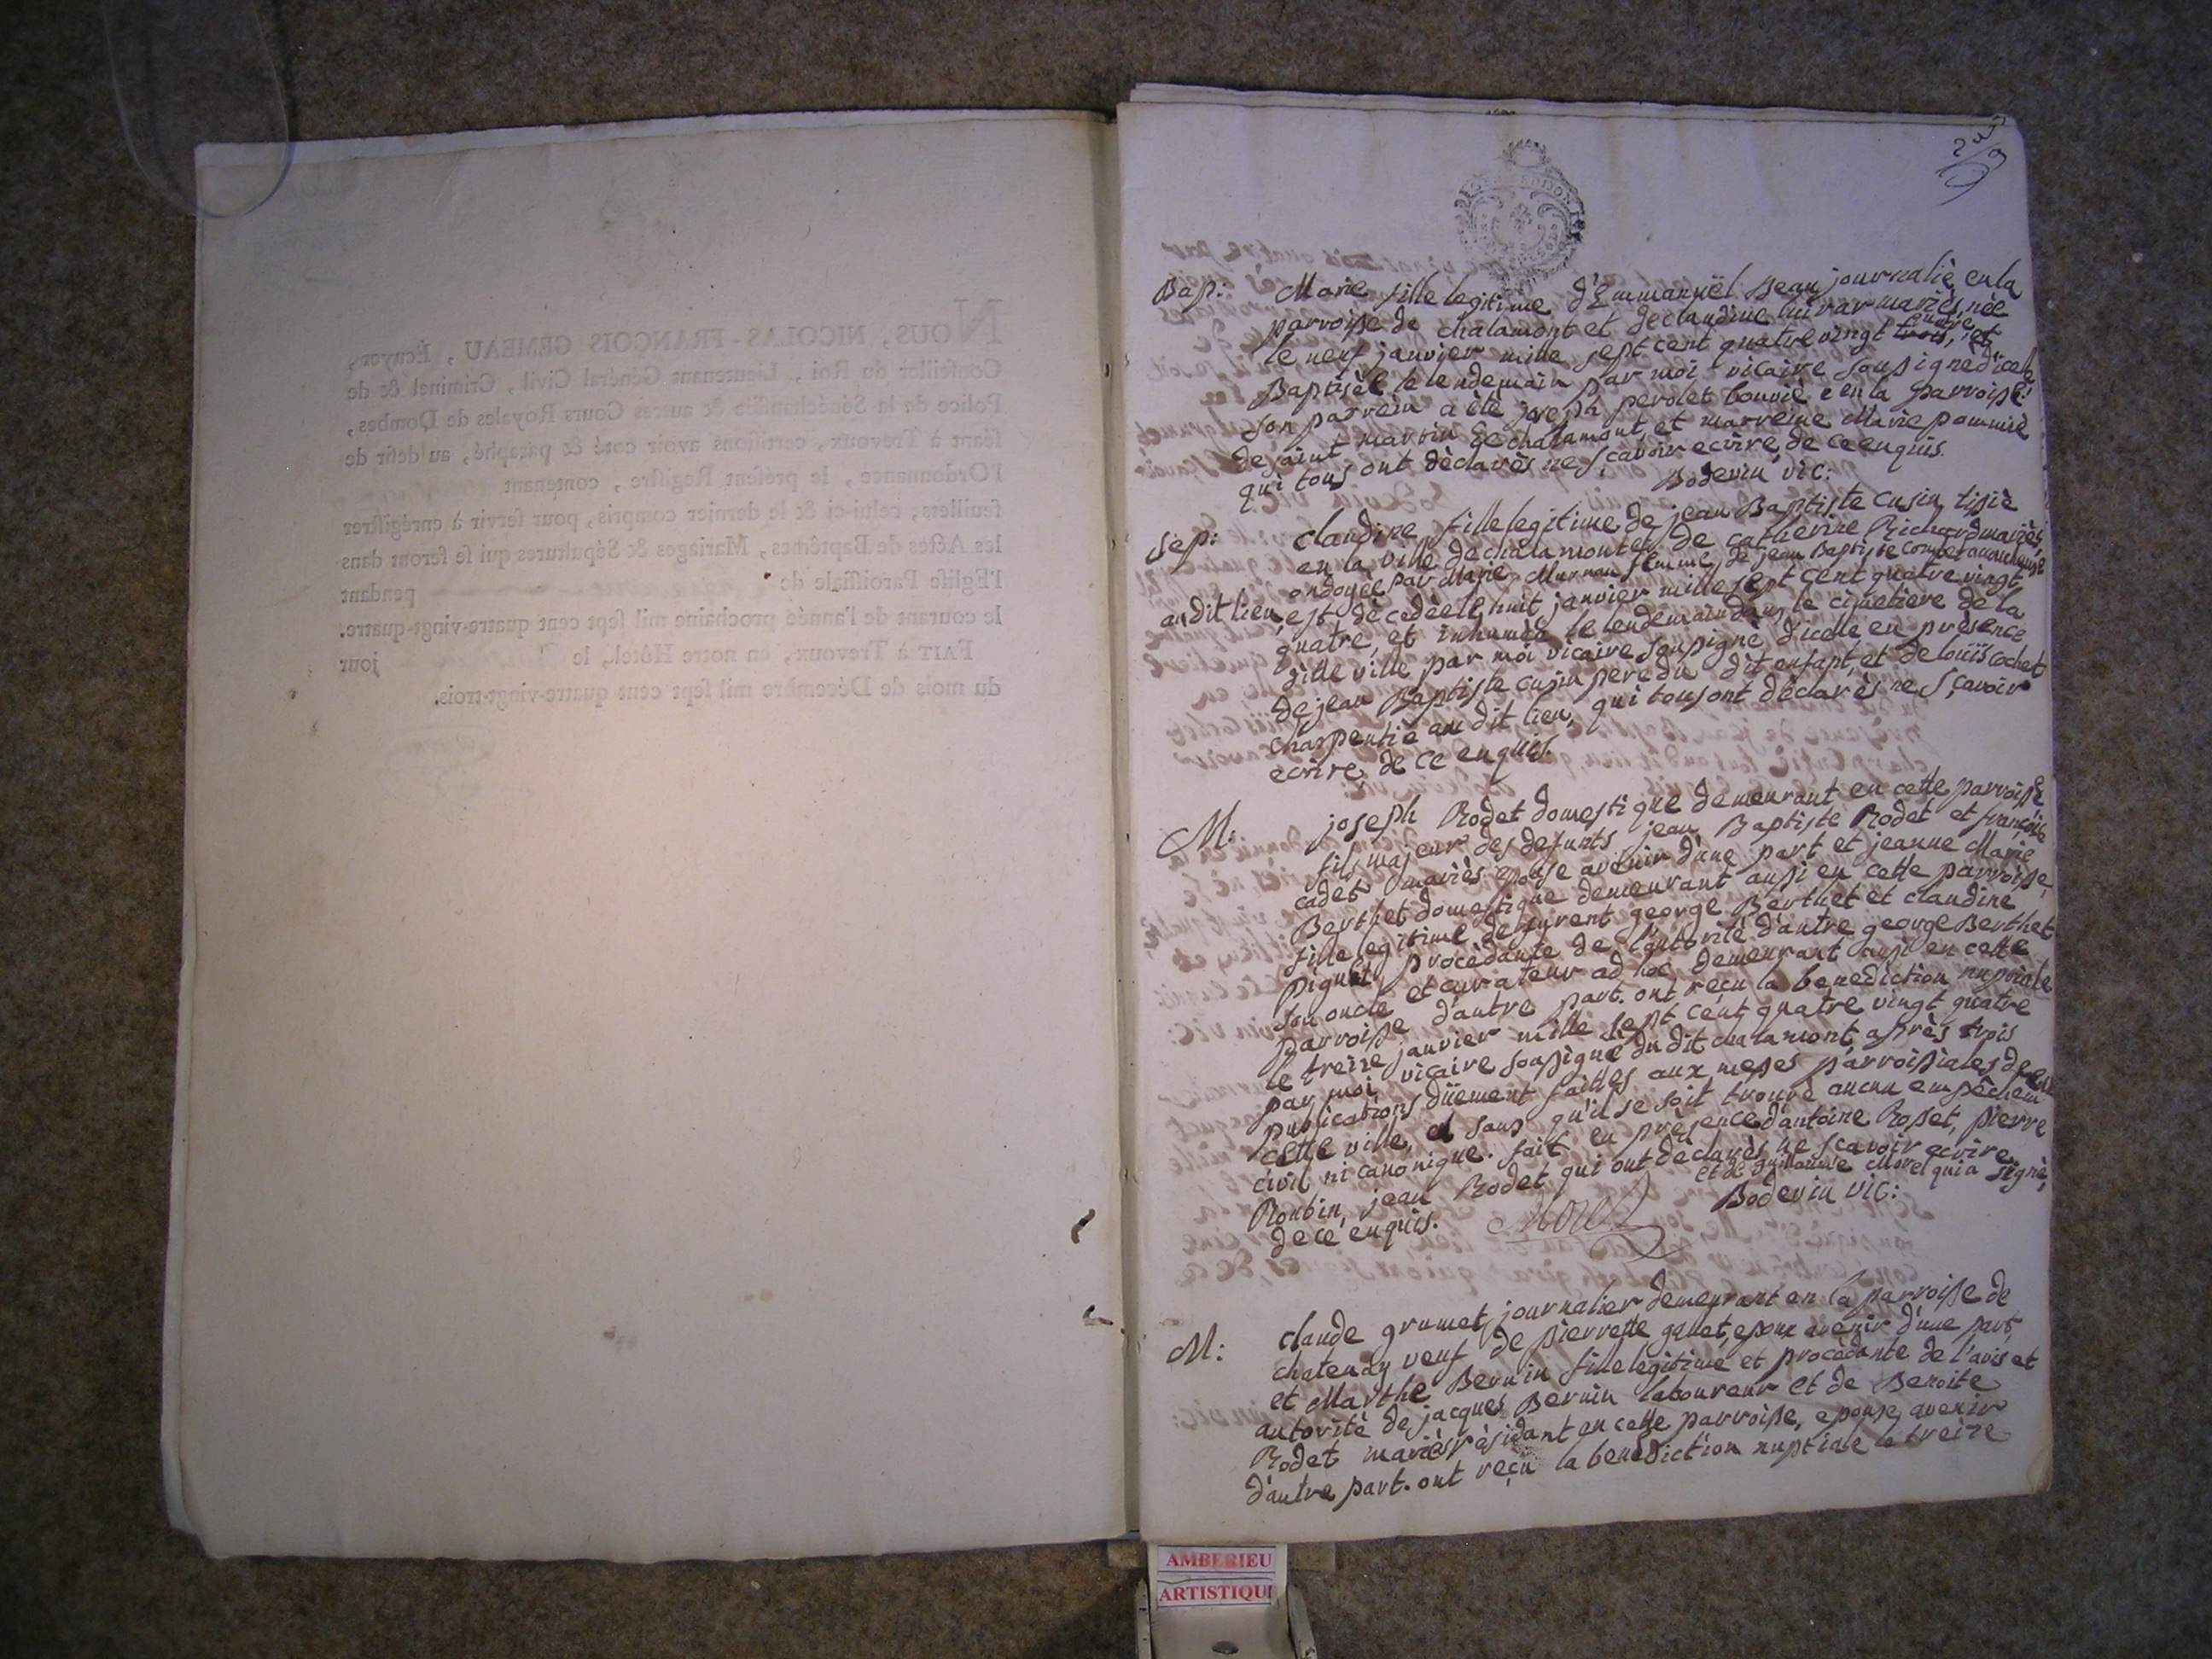 NOUS, NICOLAS-FRANÇOIS GEMEAU, Écuyer,
Conseiller du Roi, Lieutenant Général Civil, Criminel & de
Police de la Sénéchaussée & autres Cours Royales de Dombes,
séant à Trevoux, certifions avoir coté & paraphé, au desir de
l'Ordonnance, le présent Registre, contenant
feuillets, celui-ci & le dernier compris, pour servir à enrégistrer
les Actes de Baptêmes, Mariages & Sépultures qui se feront dans
l'Eglise Paroissiale de pendant
le courant de l'année prochaine mil sept cent quatre-vingt-quatre.
FAIT à Trevoux, en notre Hôtel, le jour
du mois de Décembre mil sept cent quatre-vingt-trois.
Bap: Marie fille legitime d'Emmanuël Beau journaliè en la
parroisse de chalamont et de claudine mariès, nèe
le neuf janvier mille sept cent quatre vingt trois, quatre et
Baptisèe le lendemain par moi vicaire soussignè d'icelle
son parrein a ètè joseph perolet bouviè en la parroisse
de saint martin de chalamont, et marreine Marie pommiè
qui tous ont dèclarès ne sçavoir ecrire, de ce enquis.
Bodevin vic:
Sep: Claudine fille legitime de jean Baptiste cusin tisiè
en la ville de chalamont et de catherine Richard mariès,
ondoyèe par Marie Murnau femme de jean Baptiste accoucheuse
au dit lieu, est dècedèe le huit janvier mille sept cent quatre vingt
quatre, et inhumèe le lendemain dans le cimetiere de la
dite ville par moi vicaire soussignè d'icelle en prèsence
de jean Baptiste cusin pere du dit enfant, et de louïs cochet
charpentiè au dit lieu, qui tous ont dèclarès ne sçavoir
ecrire, de ce enquis.
M: joseph Rodet domestique demeurant en cette parroisse
fils majeur des defunts jean Baptiste Rodet et françoise
cadet mariès èpouse avenir d'une part et jeanne Marie
Berthet domestique demeurant aussi en cette parroisse
fille legitime de furent george Berthet et claudine
piguet, procèdante de l'autoritè d'autre george Berthet
son oncle et curateur ad hoc demeurant aussi en cette
parroisse d'autre part. ont reçu la benediction nuptiale
le treize janvier mille sept cent quatre vingt quatre
par moi vicaire soussignè du dit chalamont après trois
publications düement faittes aux messes parroissiales de
cette ville, et sans qu'il se soit trouvè aucun empêchem
civil ni canonique. fait en prèsence d'antoine Rosset, pierre
Roubin, jean Rodet qui ont dèclarès ne sçavoir ecrire
de ce enquis. et de guillaume Morel qui a signè,
Morel Bodevin vic:
M: claude grumet journalier demeurant en la parroisse de
chatenay veuf de pierrette gallet, epoux avenir d'une part,
et Marthe Bernin fille legitime et procèdante de l'avis et
autoritè de jacques Bernin laboureur et de Benoite
Rodet mariès rèsidant en cette parroisse, epouse, avenir
d'autre part. ont reçu la benediction nuptiale le treize
AMBERIEU
ARTISTIQU